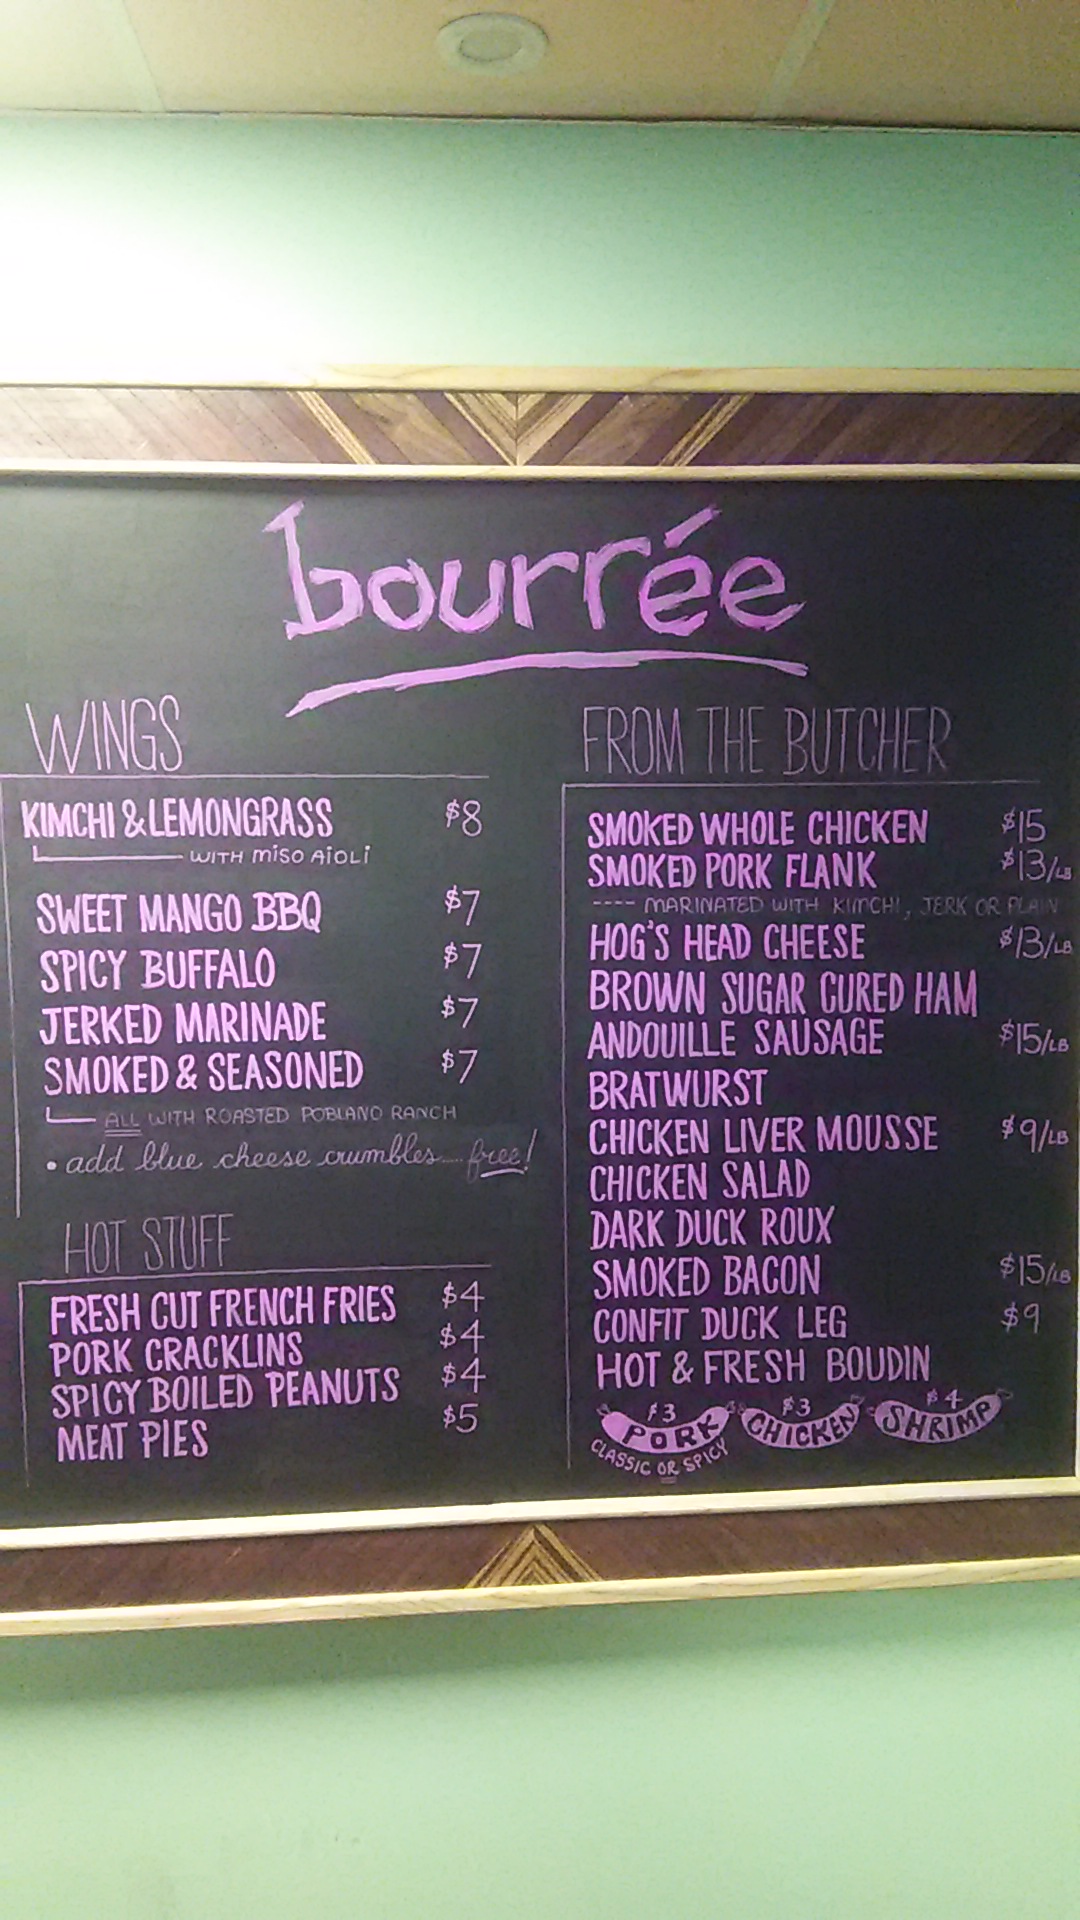 bourrée
WINGS
KIMCHI & LEMONGRASS $8
WITH MISO AIOLI
SWEET MANGO BBQ $7
SPICY BUFFALO $7
JERKED MARINADE $7
SMOKED & SEASONED $7
ALL WITH ROASTED POBLANO RANCH
• add blue cheese crumbles.... free!
HOT STUFF
FRESH CUT FRENCH FRIES $4
PORK CRACKLINS $4
SPICY BOILED PEANUTS $4
MEAT PIES $5
FROM THE BUTCHER
SMOKED WHOLE CHICKEN $15
SMOKED PORK FLANK $13/LB
---- MARINATED WITH KIMCHI, JERK OR PLAIN
HOG'S HEAD CHEESE $13/LB
BROWN SUGAR CURED HAM
ANDOUILLE SAUSAGE $15/LB
BRATWURST
CHICKEN LIVER MOUSSE $9/LB
CHICKEN SALAD
DARK DUCK ROUX
SMOKED BACON $15/LB
CONFIT DUCK LEG $9
HOT & FRESH BOUDIN
$3 $3 $4
PORK CHICKEN SHRIMP
CLASSIC OR SPICY